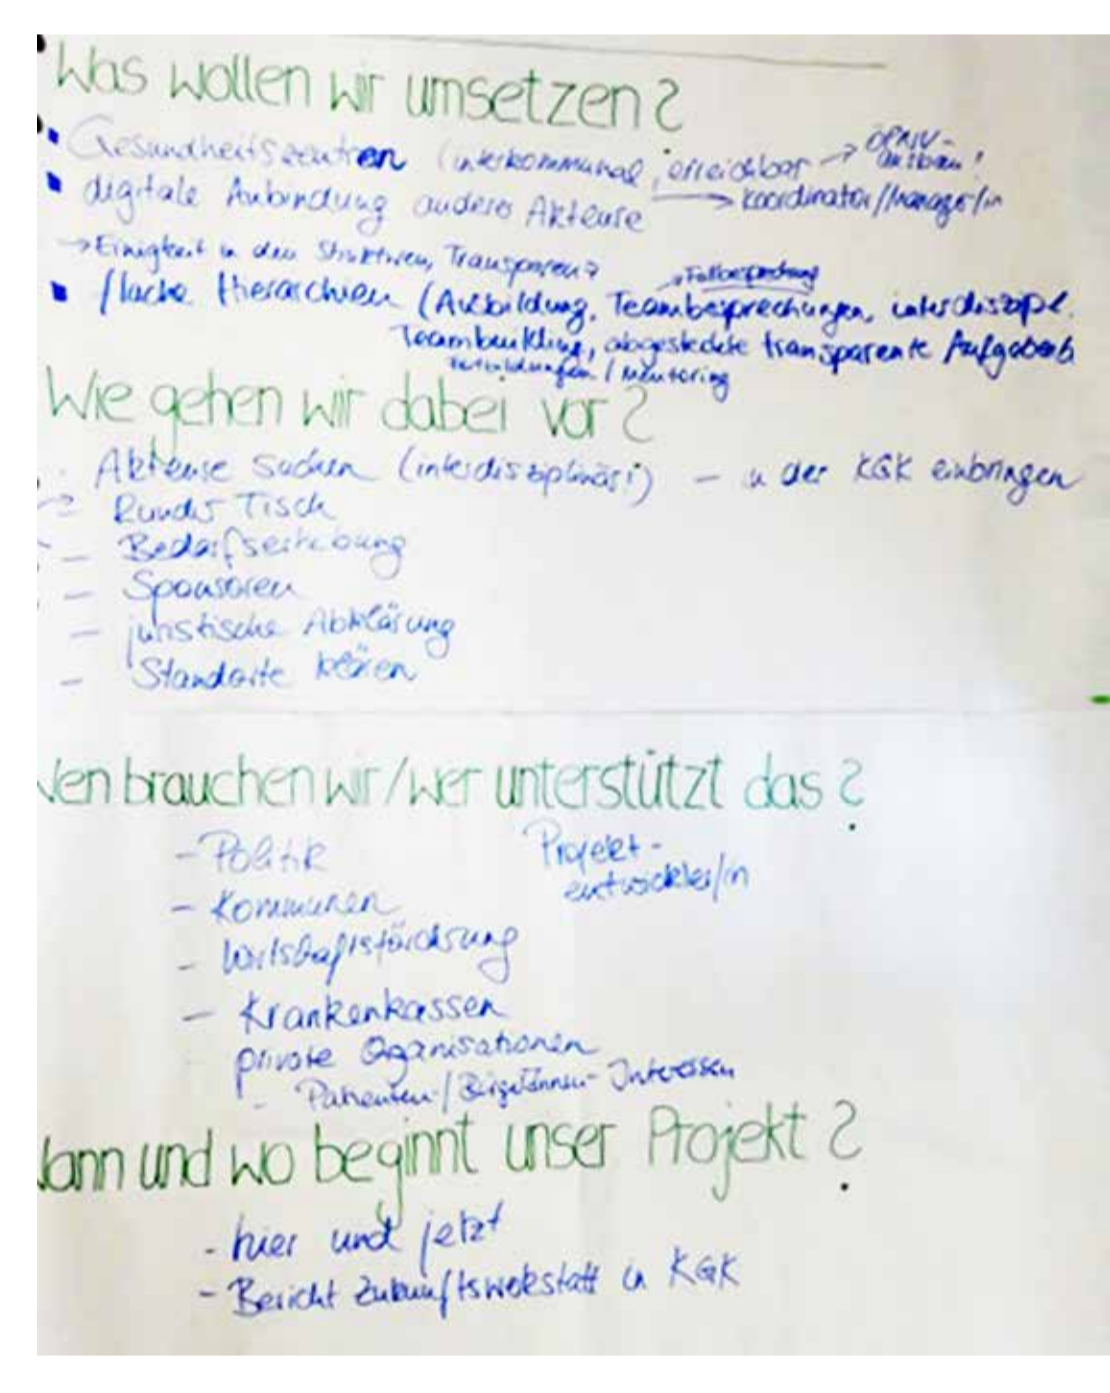 Was wollen wir umsetzen?
Gesundheitszentren (interkommunal, erreichbar → ÖPNV-
ausbau!
digitale Anbindung anderer Akteure → Koordinator/Manager/in
→ Einigkeit in den Strukturen, Transparenz
→ Fallbesprechung
flache Hierarchien (Ausbildung, Teambesprechungen, interdiszipl.
Teambuilding, abgesteckte transparente Aufgabenb
Fortbildungen / Mentoring
Wie gehen wir dabei vor?
Akteure suchen (interdisziplinär!) – in der KGK einbringen
Runder Tisch
– Bedarfserhebung
– Sponsoren
– juristische Abklärung
– Standorte klären
Wen brauchen wir/wer unterstützt das?
- Politik
Projekt-
entwickler/in
- Kommunen
- Wirtschaftsförderung
- Krankenkassen
private Organisationen
- Patienten-/BürgerInnen-Interessen
Wann und wo beginnt unser Projekt?
- hier und jetzt
- Bericht Zukunftswekstatt in KGK